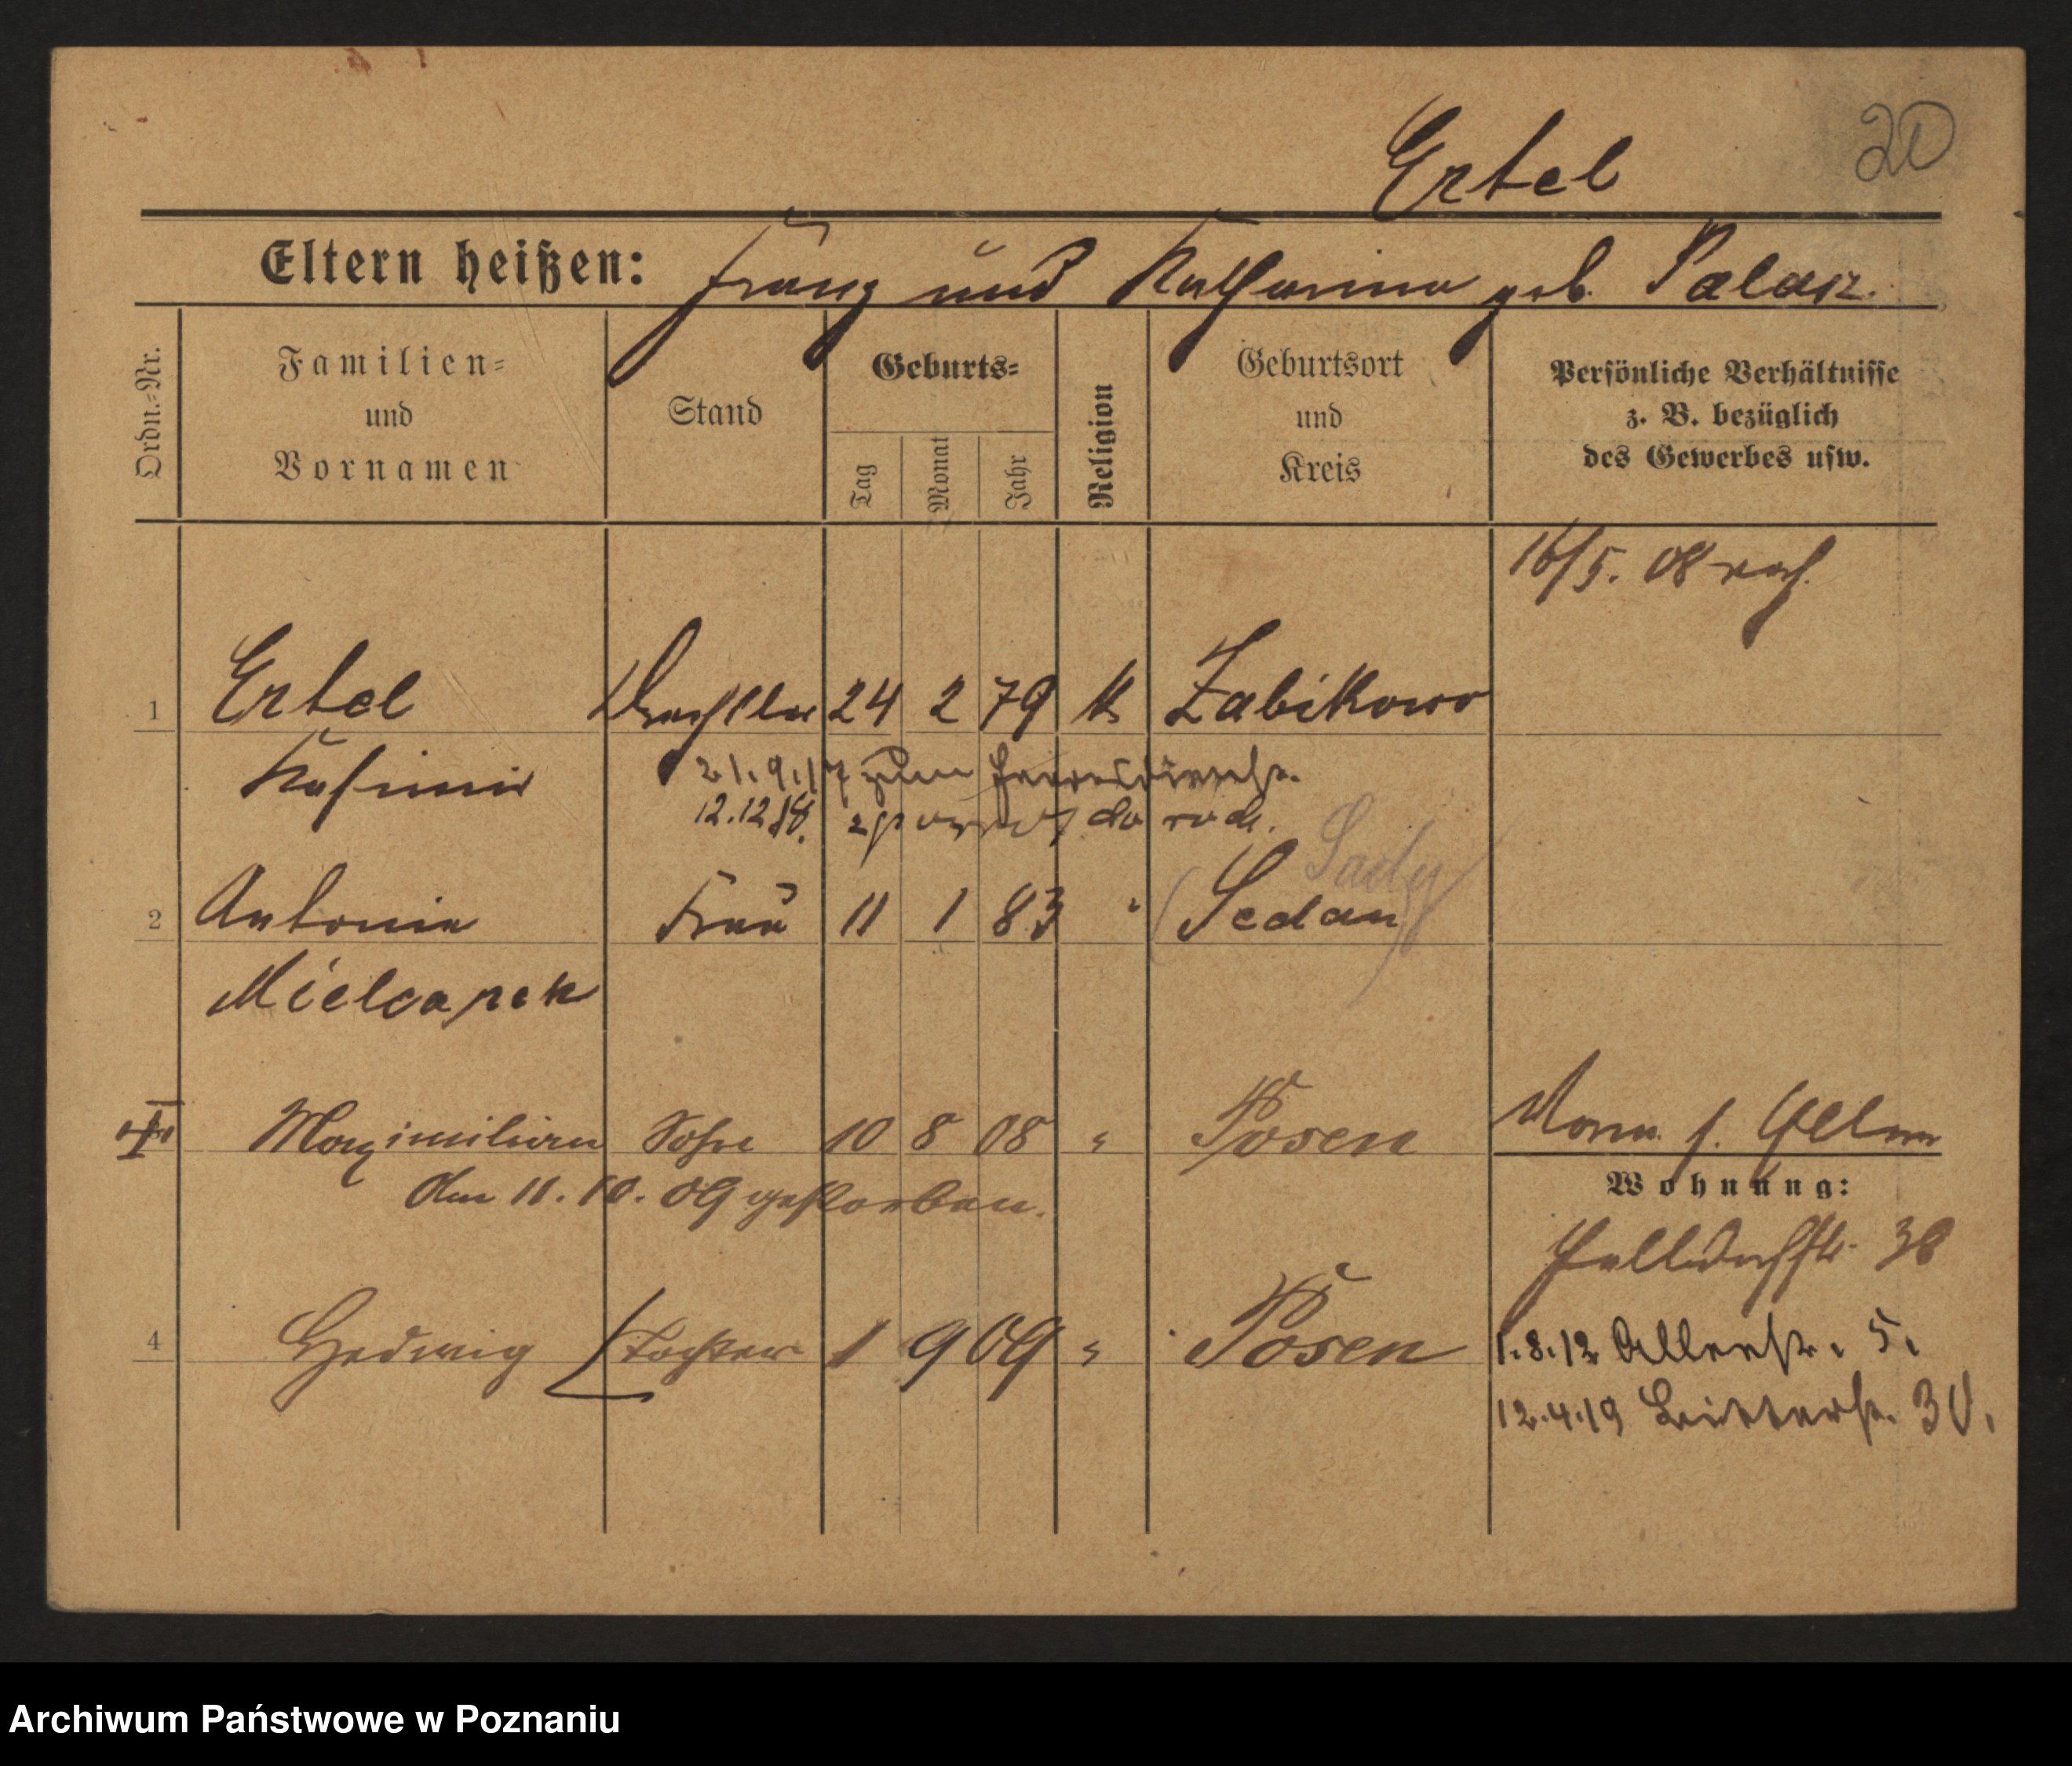 20
Ertel
Eltern heißen: Franz und Katharina geb. Palacz
Ordn.-Nr.
Familien- und Vornamen
Stand
Geburts-
Tag Monat Jahr
Religion
Geburtsort und Kreis
Persönliche Verhältnisse
z. B. bezüglich
des Gewerbes usw.
16/5. 08
1 Ertel Drechsler 24 2 79 k Zabikowo
Kasimir 21.9.17 zum Heeresdienst.
12.12.18. z powrot do rodz.
Sady
2 Antonie Frau 11 1 83 " (Sedan)
Mielcarek
Maximilian Sohn 10 8 08 " Posen
Am 11. 10. 09 gestorben.
Wohnung:
38
4 Hedwig Tochter 1 9 09 " Posen
1.8.12 5.
12.4.19 30.
Archiwum Państwowe w Poznaniu